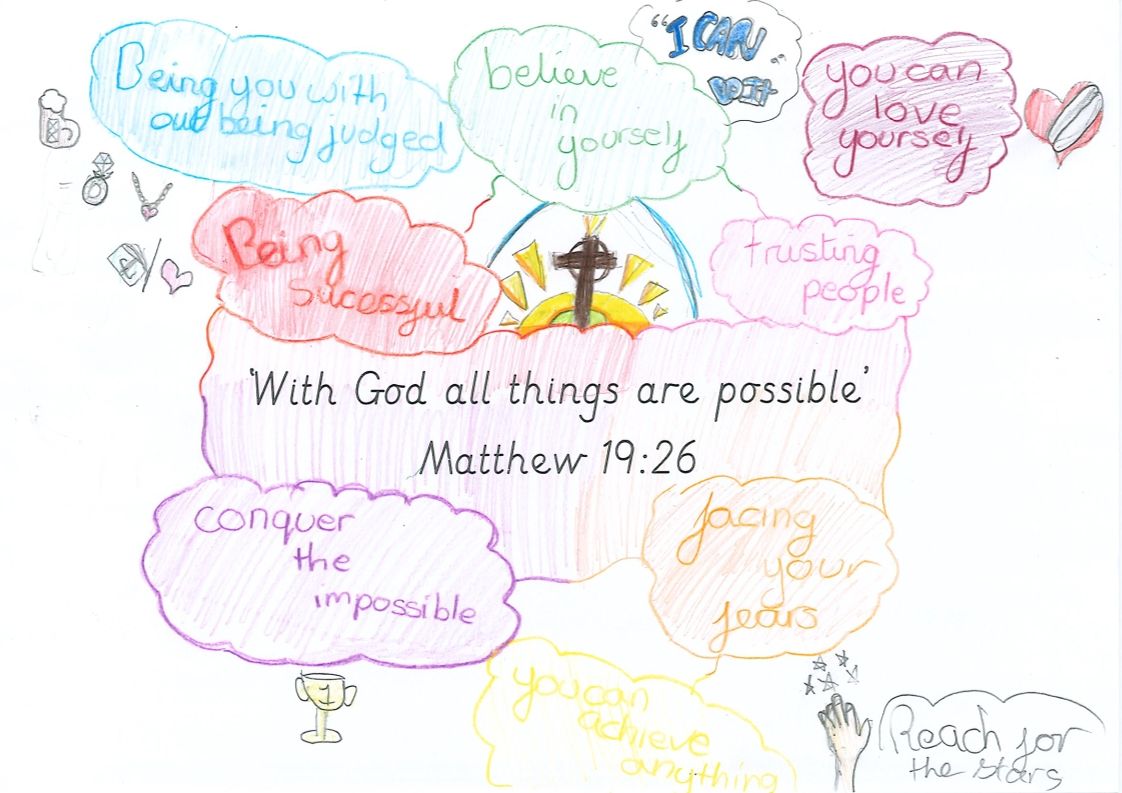 Being you with
out being judged
believe
in
yourself
"I CAN
DO IT
you can
love
yourself
Being
sucessful
trusting
people
'With God all things are possible'
Matthew 19:26
conquer
the
impossible
facing
your
fears
1
you can
achieve
anything
Reach for
the stars